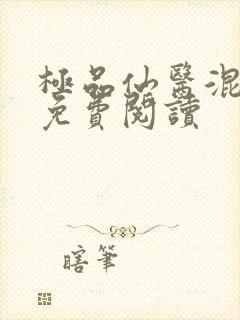 極品仙醫混
免費閱讀
瞎筆